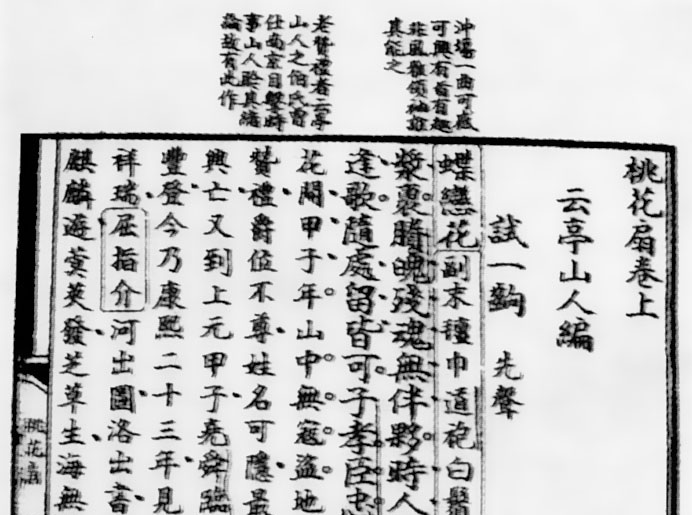 沖場一曲可感
可興有旨有趣
非風雅領袖誰
其能之
老贊禮者云亭
山人之伯氏曾
仕南京目擊時
事山人聆其緒
論故有此作
桃花扇卷上
云亭山人編
試一齣 先聲
蝶戀花副末氊巾道袍白鬚
漿裹賸魄殘魂無伴夥時人
逢歌隨處留皆可子孝臣忠
花開甲子年山中無寇盜地
贊禮爵位不尊姓名可隱最
興亡又到上元甲子堯舜臨
豐登今乃康熙二十三年見
祥瑞屈指介河出圖洛出書
麒麟遊蓂莢發芝草生海無
桃花扇